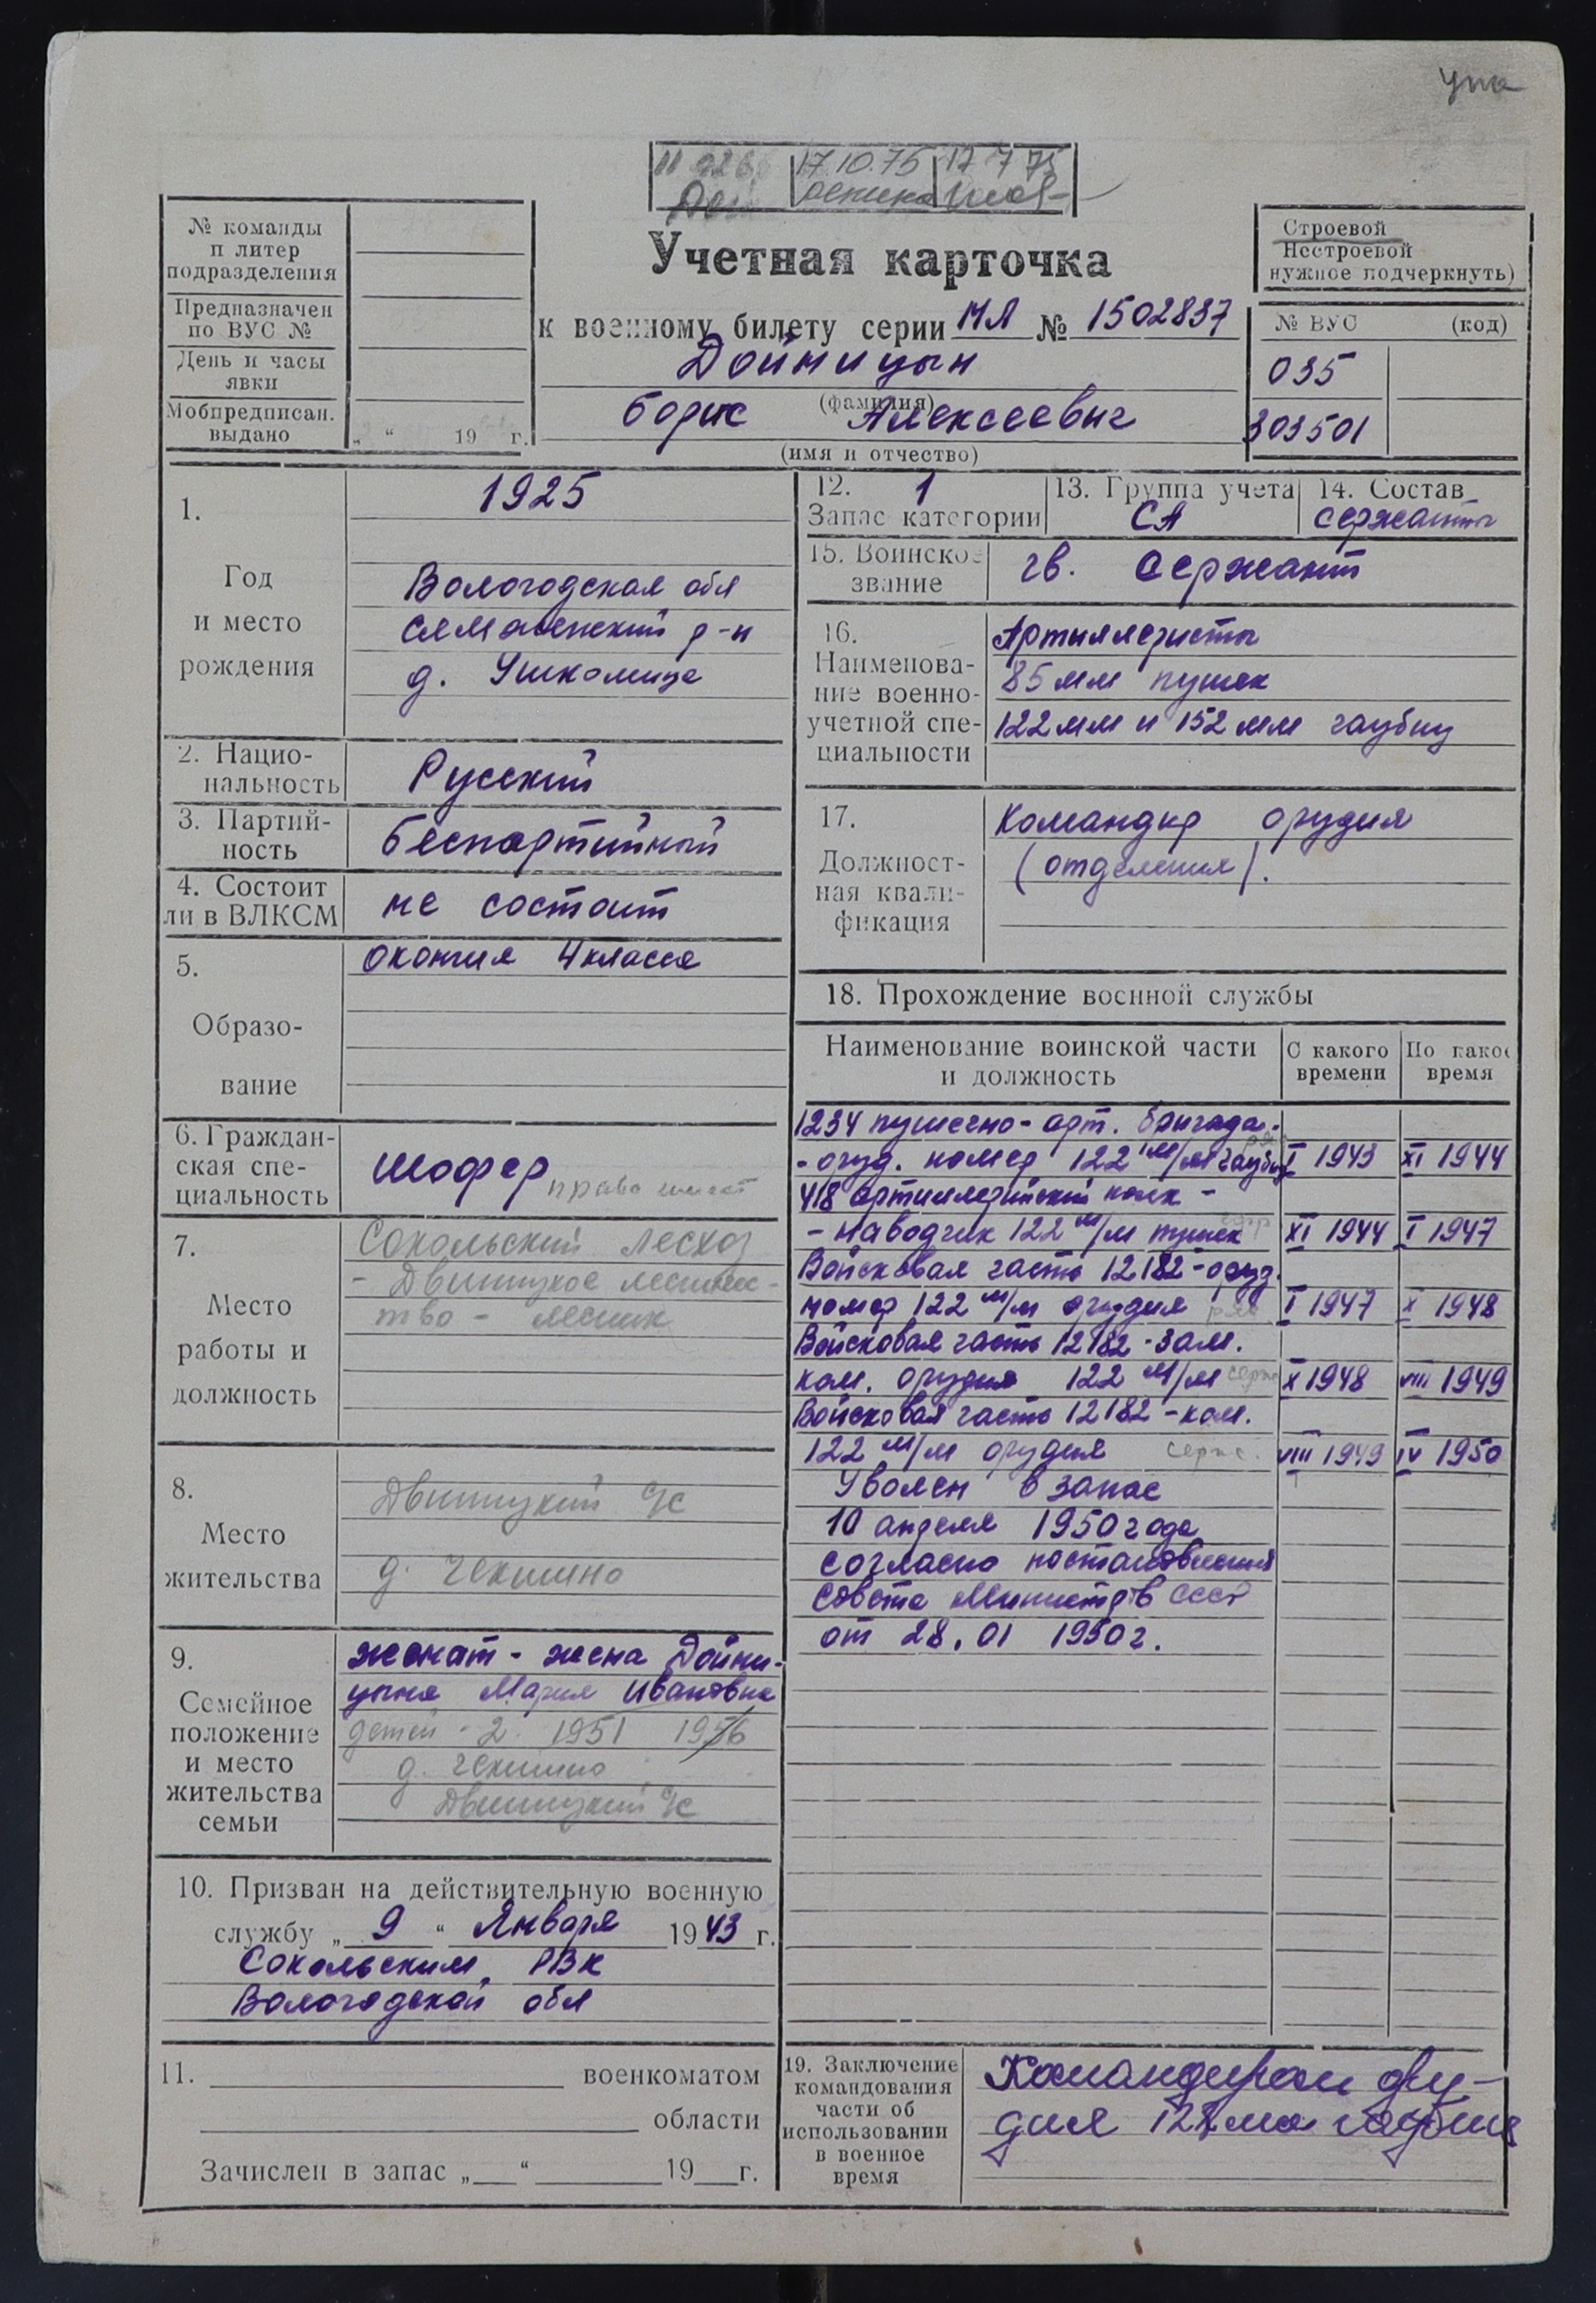 17.10.75 17 7 75
№ команды
и литер
подразделения
Предназначен
по ВУС №
День и часы
явки
Мобпредписан.
выдано
„ “ 19 г.
Учетная карточка
к военному билету серии МЛ № 1502837
Дойницын
(фамилия)
Борис Алексеевич
(имя и отчество)
Строевой
Нестроевой
нужное подчеркнуть)
№ ВУС (код)
035
303501
1.
Год
и место
рождения
1925
Вологодская обл
р-н
д.
2. Нацио-
нальность
Русский
3. Партий-
ность
беспартийный
4. Состоит
ли в ВЛКСМ
не состоит
5.
Образо-
вание
окончил 4 класса
6. Граждан-
ская спе-
циальность
шофер права имеет
7.
Место
работы и
должность
Сокольский лесхоз
- Двиницкое лесниче-
тво - лесник
8.
Место
жительства
Двиницкий с/с
д. Чекшино
9.
Семейное
положение
и место
жительства
семьи
женат - жена Дойни-
цына Мария Ивановна
детей - 2. 1951 1956
д. Чекшино
Двиницкий с/с
10. Призван на действительную военную
службу „ 9 “ Января 1943 г.
Сокольским РВК
Вологодской обл
11. военкоматом
области
Зачислен в запас „ “ 19 г.
12. 1
Запас категории
13. Группа учета
СА
14. Состав
сержанты
15. Воинское
звание
гв. сержант
16.
Наименова-
ние военно-
учетной спе-
циальности
Артиллеристы
85 мм пушек
122 мм и 152 мм гаубиц
17.
Должност-
ная квали-
фикация
Командир орудия
(отделения).
18. Прохождение военной службы
Наименование воинской части
и должность
С какого
времени
По какое
время
1234 пушечно-арт. бригада-
- оруд. номер 122 м/м гаубиц I 1943 XI 1944
418 артиллерийский полк -
- наводчик 122 м/м пушек XI 1944 I 1947
Войсковая часть 12182 - оруд.
номер 122 м/м орудия ряд I 1947 X 1948
Войсковая часть 12182 - зам.
ком. орудия 122 м/м серж X 1948 VIII 1949
Войсковая часть 12182 - ком.
122 м/м орудия серж. VIII 1949 IV 1950
Уволен в запас
10 апреля 1950 года
согласно постановления
Совета Министров СССР
от 28.01 1950 г.
19. Заключение
командования
части об
использовании
в военное
время
Командиром ору-
дия 122 мм гаубиц